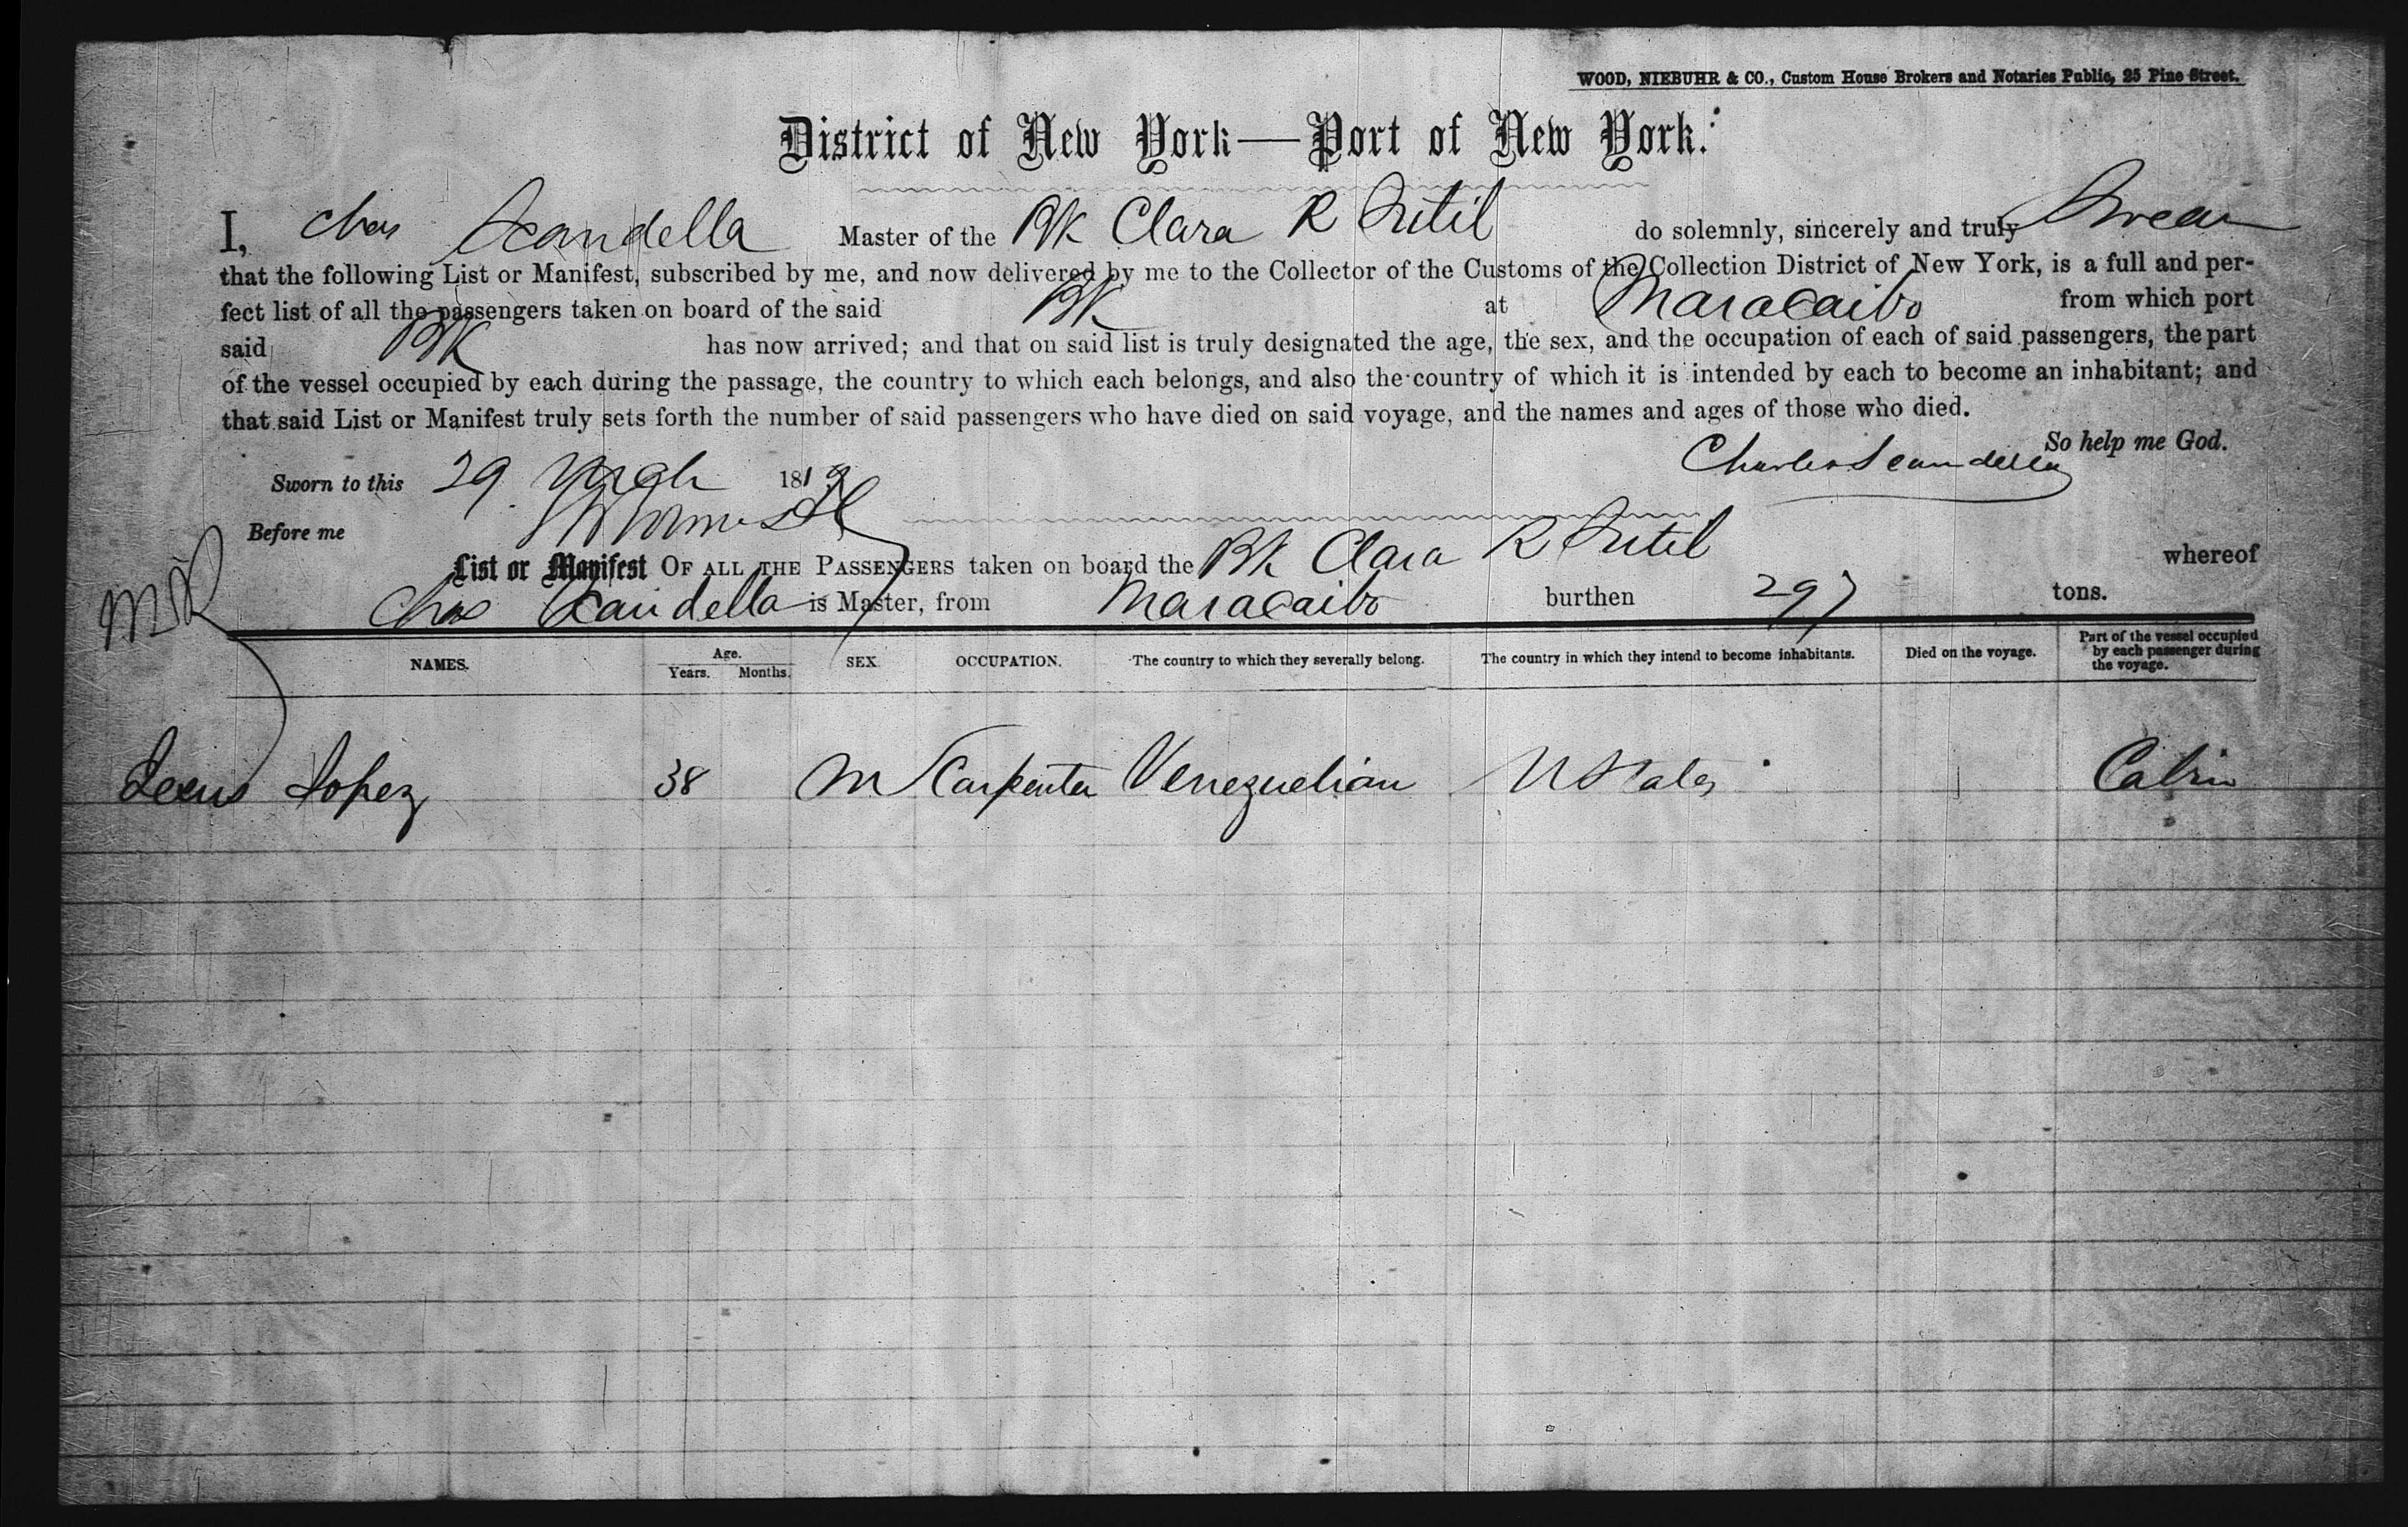 WOOD, NIEBUHR & CO., Custom House Brokers and Notaries Public, 25 Pine Street.
District of New York—Port of New York.
I, Chas Scandella Master of the Bk Clara R Sutil do solemnly, sincerely and truly Swear
that the following List or Manifest, subscribed by me, and now delivered by me to the Collector of the Customs of the Collection District of New York, is a full and per-
fect list of all the passengers taken on board of the said Bk at Maracaibo from which port
said Bk has now arrived; and that on said list is truly designated the age, the sex, and the occupation of each of said passengers, the part
of the vessel occupied by each during the passage, the country to which each belongs, and also the country of which it is intended by each to become an inhabitant; and
that said List or Manifest truly sets forth the number of said passengers who have died on said voyage, and the names and ages of those who died.
So help me God.
Charles Scandella
Sworn to this 29 March 18
Before me
List or Manifest OF ALL THE PASSENGERS taken on board the Bk Clara R Sutil whereof
Chas Scandella is Master, from Maracaibo burthen 297 tons.
NAMES. Age. Years. Months. SEX. OCCUPATION. The country to which they severally belong. The country in which they intend to become inhabitants. Died on the voyage. Part of the vessel occupied by each passenger during the voyage.
Lopez 38 M Carpenter Venezuelian U States Cabin